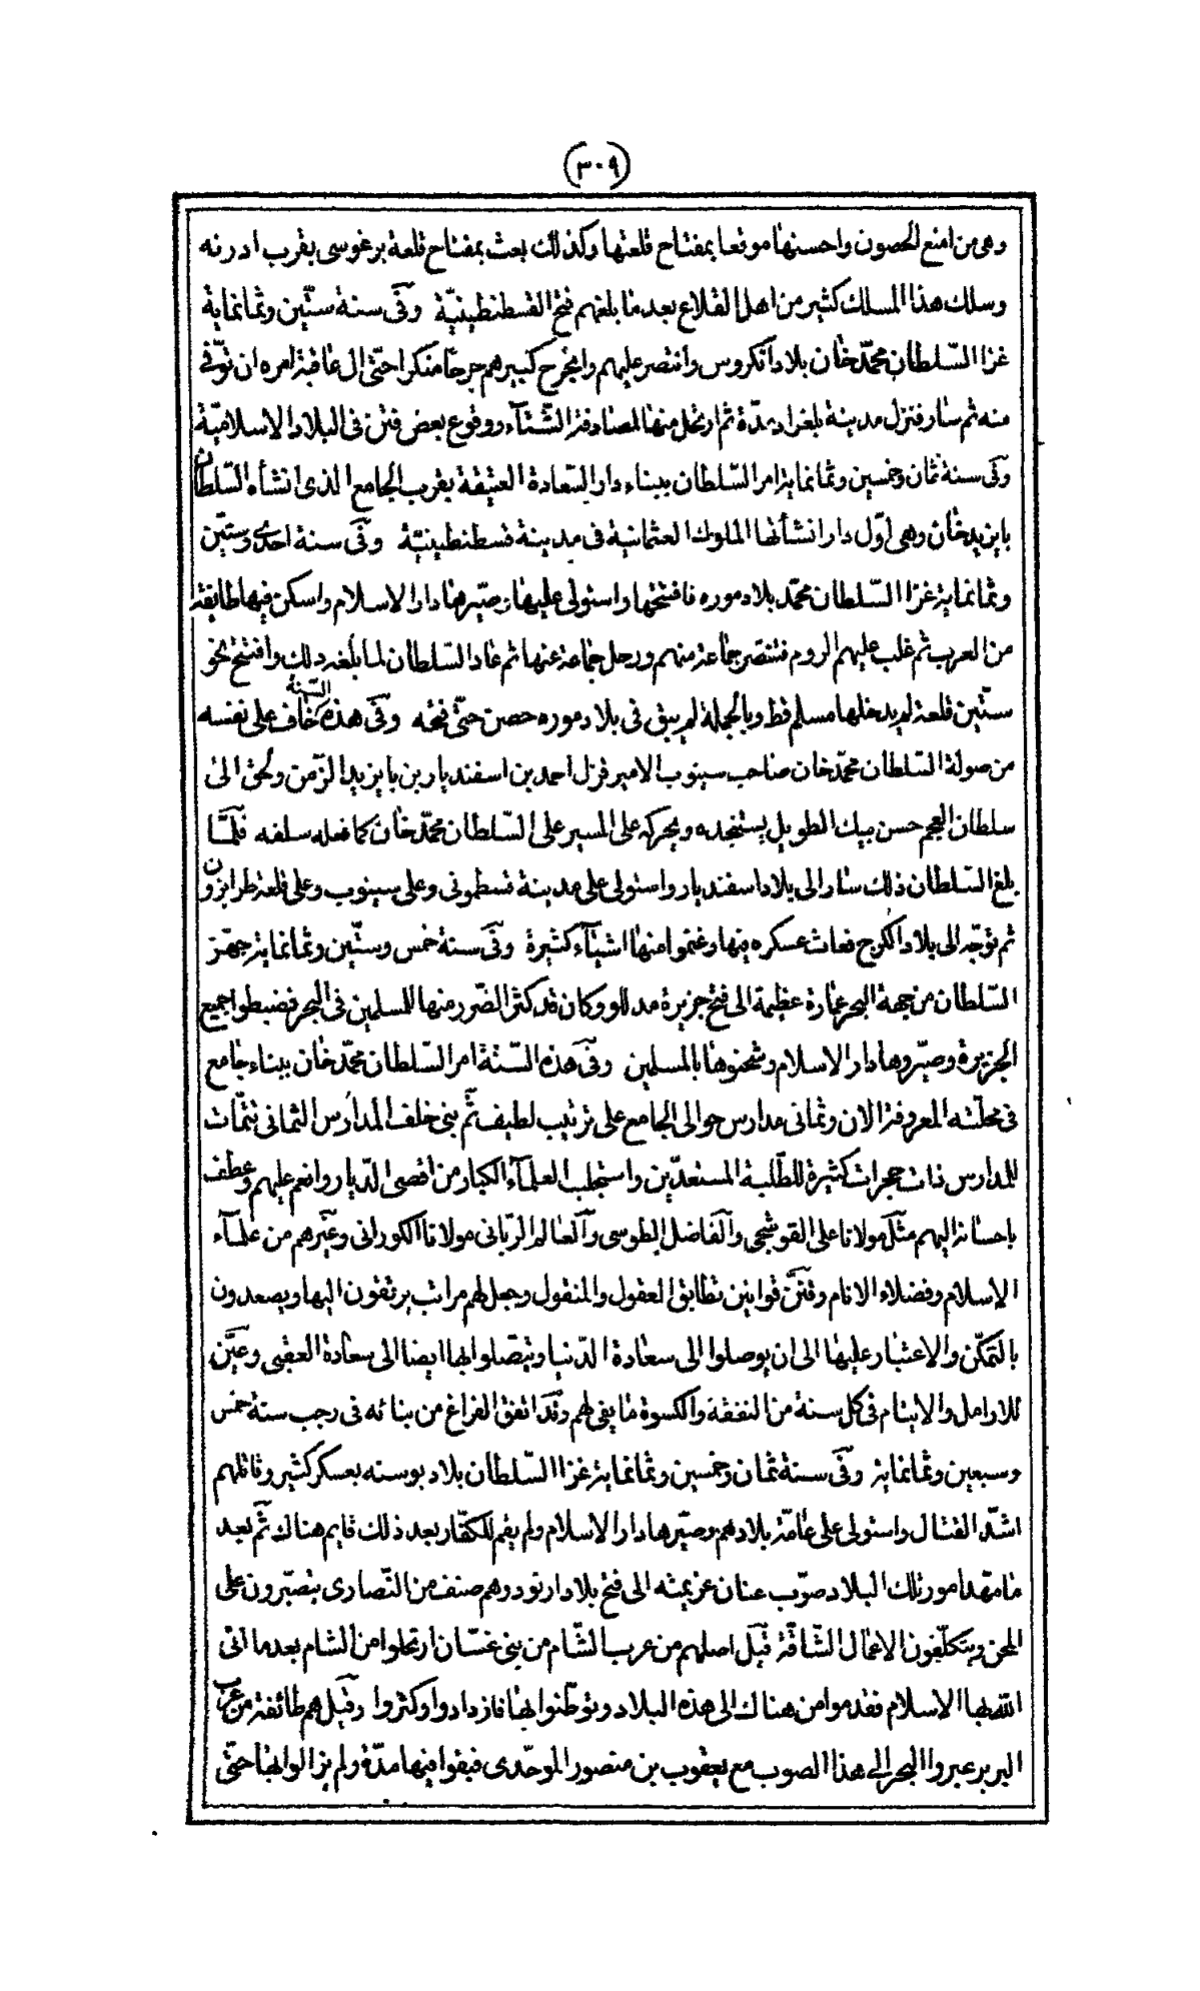 (٣٠٩)
وهى من امنع الحصون واحسنها موقعا بمفتاح قلعتها وكذلك بعث بمفتاح قلعة برغوسى بقرب ادرنه
وسلك هذا المسلك كثير من اهل القلاع بعد ما بلغهم فتح القسطنطينيّة وفى سنة ستّين وثمانماية
غزا السّلطان محمّد خان بلاد آنكروس وانتصر عليهم وانجرح كبيرهم جرحا منكرا حتّى ال عاقبة امره ان توّفى
منه ثم سار فنزل مدينة بلغراد مدّة ثم ارتحل منها لمصادفة الشّتآء ووقوع بعض فتن فى البلاد الاسلاميّة
وفى سنة ثمان وخمسين وثمانماية امر السّلطان ببناء دار السّعادة العتيقة بقرب الجامع الذى انشأه السّلطان
بايزيد خان وهى اوّل دار انشأتها الملوك العثمانية فى مدينة قسطنطينيّة وفى سنة احدى وستّين
وثمانماية غزا السّلطان محمّد بلاد موره فافتتحها واستولى عليها وصيّرها دار الاسلام واسكن فيها طايفة
من العرب ثم غلب عليهم الروم فتنصر جماعة منهم ورحل جماعة عنها ثم عاد السّلطان لما بلغه ذلك وافتتح نحو
ستّين قلعة لم يدخلها مسلم قط وبالجملة لم يبق فى بلاد موره حصن حتّى فتحه وفى هذه السّنة خاف على نفسه
من صولة السّلطان محمّد خان صاحب سينوب الامير قزل احمد بن اسفنديار بن بايزيد الزّمن ولحق الى
سلطان العجم حسن بيك الطويل يستنجده ويحركه على المسير على السّلطان محمّد خان كما فعله سلفه فلمّا
بلغ السّلطان ذلك سار الى بلاد اسفنديار واستولى على مدينة قسطمونى وعلى سينوب وعلى قلعة طرابزون
ثم توجّه الى بلاد الكرج فعاث عسكره فيها وغنموا منها اشيآء كثيرة وفى سنة خمس وستّين وثمانماية جهّز
السّلطان من جهة البحر عمارة عظيمة الى فتح جزيرة مدللو وكان قد كثر الضّرر منها للمسلمين فى البحر فضبطوا جميع
الجزيرة وصيّروها دار الاسلام وشحنوها بالمسلمين وفى هذه السّنة امر السّلطان محمّد خان ببناء جامع
فى محلّته المعروفة الان وثمانى مدارس حوالى الجامع على ترتيب لطيف ثم بنى خلف المدارس الثمانى تتمّات
للمدارس ذات حجرات كثيرة للطّلبة المستعدّين واستجلب العلمآء الكبار من اقصى الدّيار وانعم عليهم وعطف
باحسانه اليهم مثل مولانا على القوشجى والفاضل الطوسى والعالم الرّبانى مولانا الكورانى وغيرهم من علمآء
الاسلام وفضلاء الانام وقنّن قوانين تطابق العقول والمنقول وجعل لهم مراتب يرتقون اليها ويصعدون
بالتمكّن والاعتبار عليها الى ان يوصلوا الى سعادة الدّنيا ويتصّلوا بها ايضا الى سعادة العقبى وعيّن
للارامل والايتام فى كل سنة من النفقة والكسوة ما يفى لهم وقد اتفق الفراغ من بنائه فى رجب سنة خمس
وسبعين وثمانماية وفى سنة ثمان وخمسين وثمانماية غزا السّلطان بلاد بوسنه بعسكر كثير وقاتلهم
اشدّ القتال واستولى على عامّة بلادهم وصيّرها دار الاسلام ولم يقم للكفّار بعد ذلك قايم هناك ثم بعد
ما مهّد امور تلك البلاد صوّب عنان عزيمته الى فتح بلاد ارنود وهم صنف من النّصارى يتصبّرون على
المحن ويتكلّفون الاعمال الشّاقّة قيل اصلهم من عرب الشّام من بنى غسّان ارتحلوا من الشام بعد ما اتى
الله بها الاسلام فقدموا من هناك الى هذه البلاد وتوطّنوا بها فازدادوا وكثروا وقيل هم طائفة من عرب
البربر عبروا البحر الى هذا الصوب مع يعقوب بن منصور الموحّدى فبقوا فيها مدّة ولم يزالوا بها حتّى